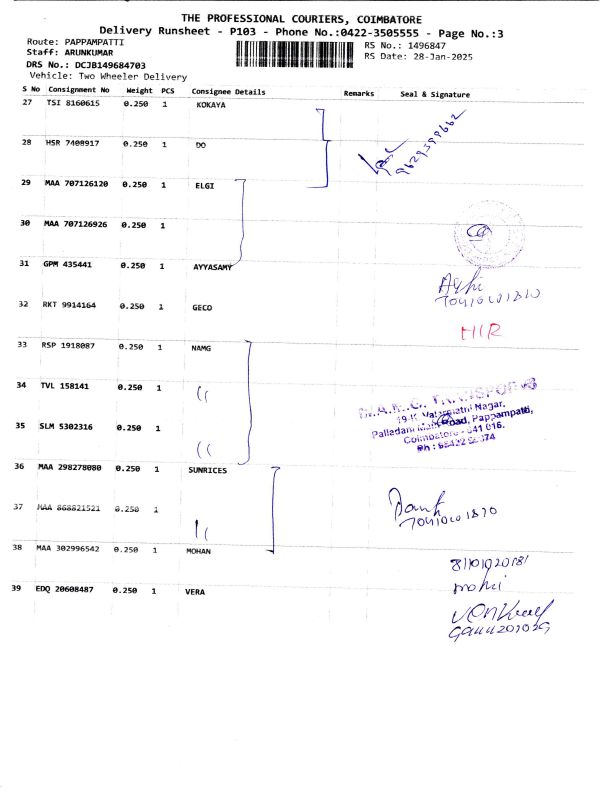 THE PROFESSIONAL COURIERS, COIMBATORE
Delivery Runsheet - P103 - Phone No.:0422-3505555 - Page No.:3
Route: PAPPAMPATTI
RS No.: 1496847
Staff: ARUNKUMAR
RS Date: 28-Jan-2025
DRS No.: DCJB149684703
Vehicle: Two Wheeler Delivery
S No Consignment No Weight PCS Consignee Details Remarks Seal & Signature
27 TSI 8160615 0.250 1 KOKAYA
28 HSR 7408917 0.250 1 DO
9629399662
29 MAA 707126120 0.250 1 ELGI
30 MAA 707126926 0.250 1
31 GPM 435441 0.250 1 AYYASAMY
32 RKT 9914164 0.250 1 GECO
33 RSP 1918087 0.250 1 NAMG
34 TVL 158141 0.250 1 ((
Palladam Main Road, Pappampatti,
35 SLM 5302316 0.250 1 ((
36 MAA 298278080 0.250 1 SUNRICES
37 MAA 868821521 0.250 1
38 MAA 302996542 0.250 1 MOHAN
39 EDQ 20608487 0.250 1 VERA